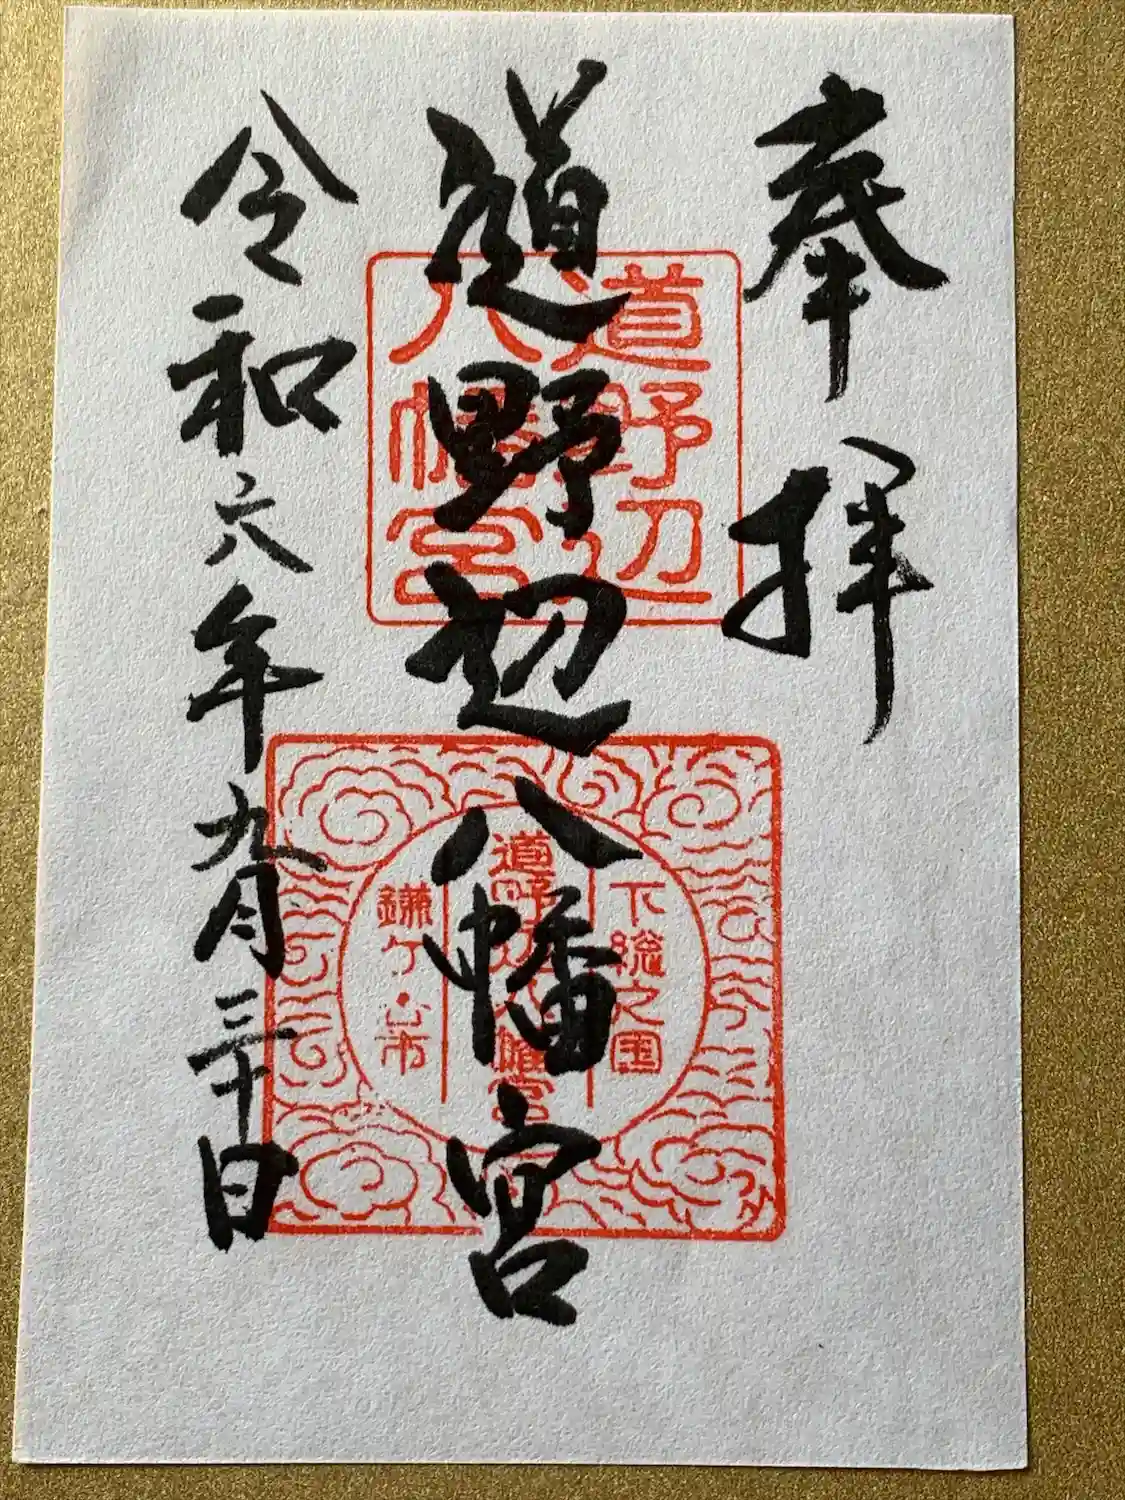 奉拝
道野辺八幡宮
令和六年九月三十日
道野辺
八幡宮
下総之国
道野辺八幡宮
鎌ケ谷市